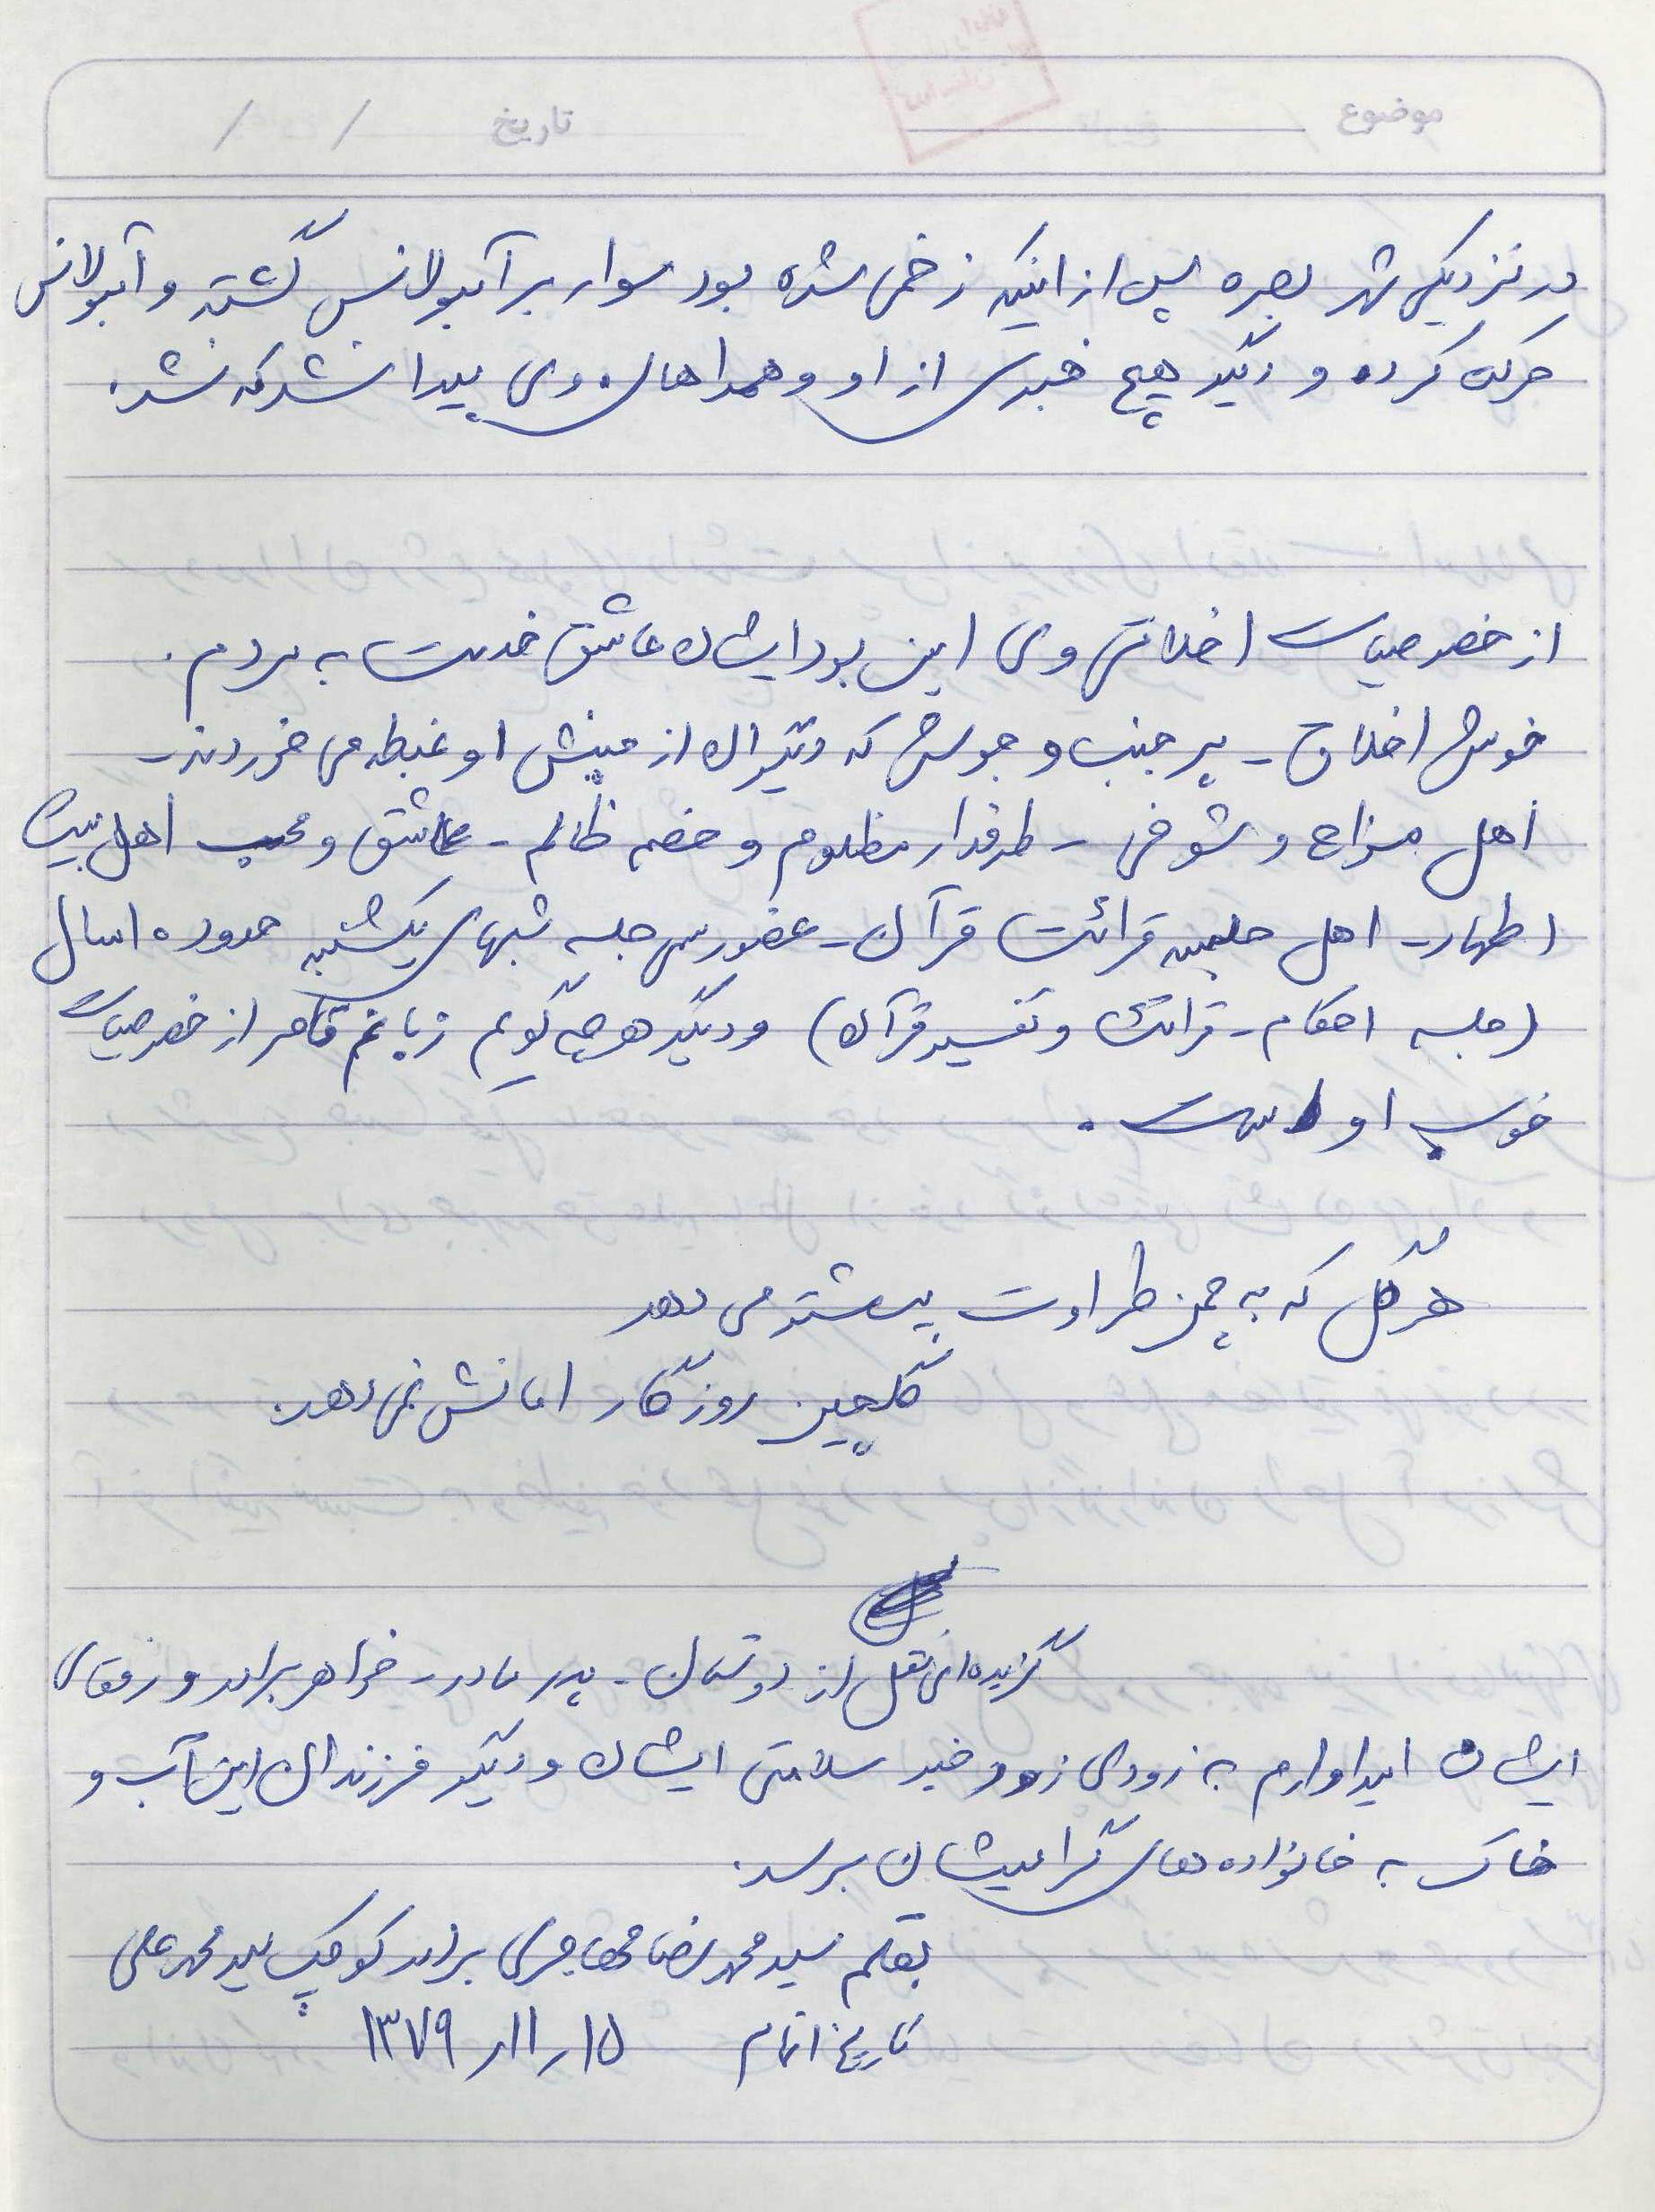 موضوع
تاریخ / /
در نزدیکی شهر بصره پس از اینکه زخمی شده بود سوار بر آمبولانس گشته و آمبولانس
حرکت کرده و دیگر هیچ خبری از او و همراهان وی پیدا نشد که نشد.
از خصوصیات اخلاقی وی این بود ایشان عاشق خدمت به مردم.
خوش اخلاق - پر جنب و جوش که دیگران از منش او غبطه می خوردند -
اهل مزاح و شوخی - طرفدار مظلوم و خصم ظالم - عاشق و محب اهل بیت
اطهار - اهل جلسه قرائت قرآن - عضو رسمی جلسه شبهای یکشنبه حدود ۱۰ سال
(جلسه احکام - قرائت و تفسیر قرآن) و دیگر هر چه گویم زبانم قاصر از خصوصیات
خوب او است.
هر گل که به چمن طراوت بیشتر می دهد
گلچین روزگار امانش نمی دهد.
گزیده ای نقل از دوستان - پدر مادر - خواهر برادر و رفقای
ایشان امیداوارم به زودی زود خبر سلامتی ایشان و دیگر فرزندان این آب و
خاک به خانواده های گرامیشان برسد.
بقلم سید محمدرضا مهاجری برادر کوچک سید محمد علی
تاریخ اتمام ۱۵ر۱۱ر۱۳۷۹